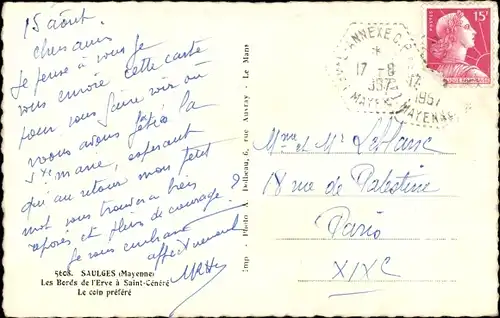 15 août.
chers amis
Je pense à vous je
vous envoie cette carte
pour vous faire voir où
nous avons fêté la
Ste marie, espérant
qui au retour mon petit
mot vous trouvera bien
reposés et pleins de courage.
Je vous embrasse
affectueusement
5608. SAULGES (Mayenne)
Les Bords de l'Erve à Saint-Cénéré
Le coin préféré
Imp. Photo A. Dolbeau, 6, rue Auvray - Le Mans
ANNEXE
17 -8
1957
MAYENNE
17
1957
MAYENNE
15F
Mme et Mr Leblanc
18 rue de Palestine
Paris
XIXe